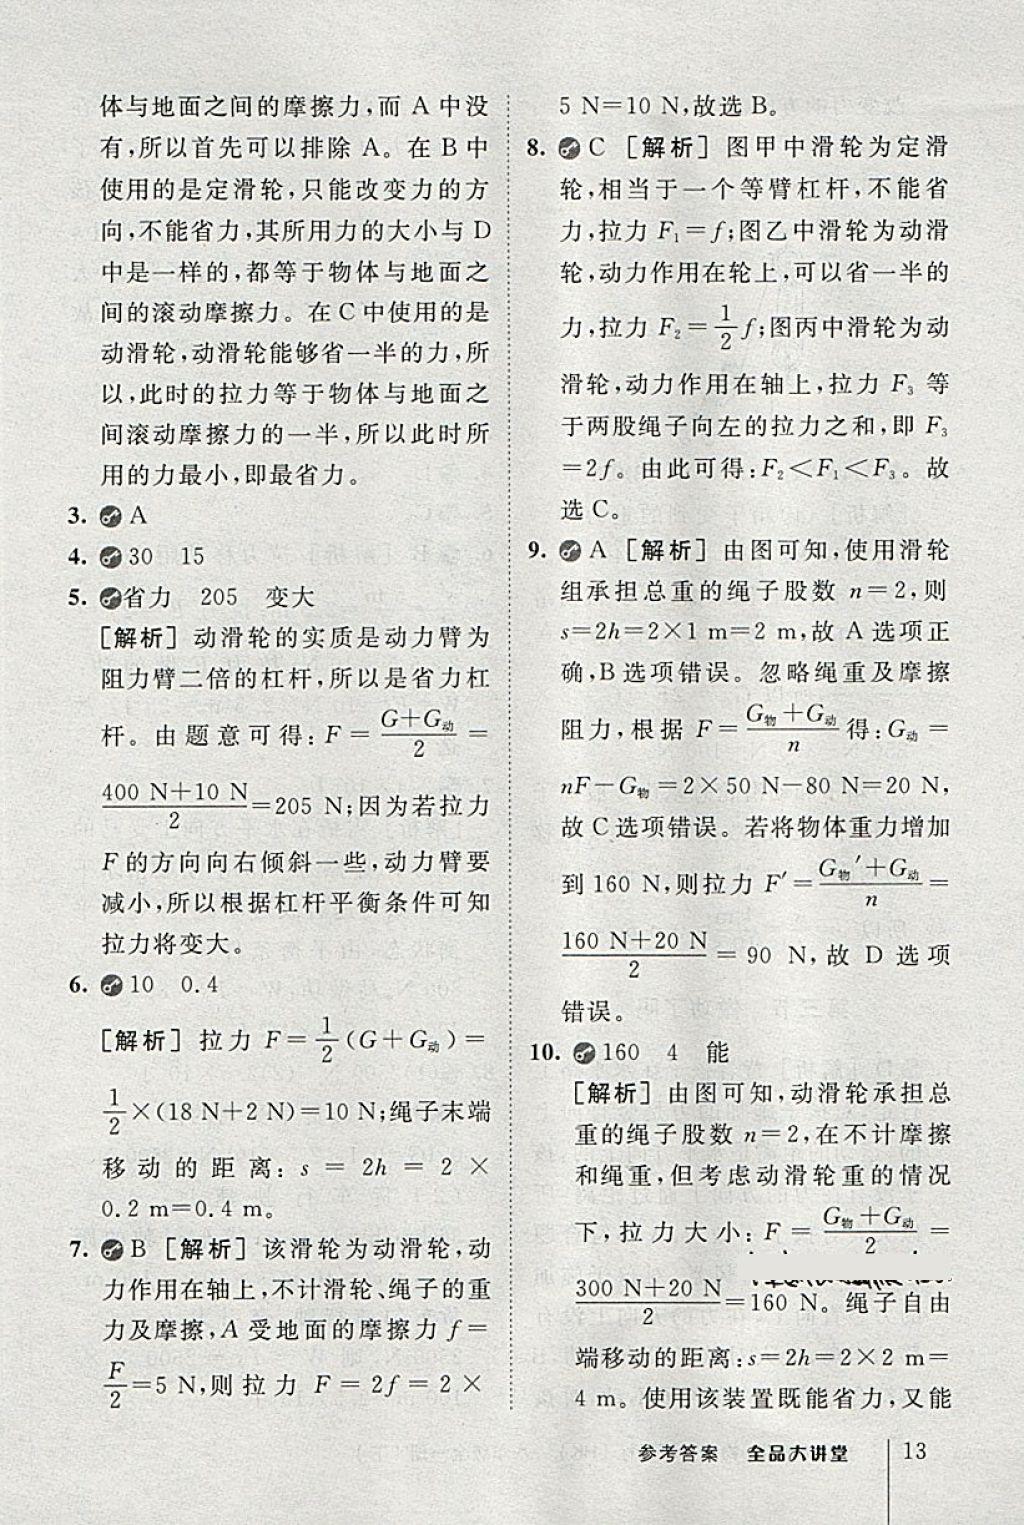 体与地面之间的摩擦力,而 A 中没
有,所以首先可以排除 A。在 B 中
使用的是定滑轮,只能改变力的方
向,不能省力,其所用力的大小与 D
中是一样的,都等于物体与地面之
间的滚动摩擦力。在 C 中使用的是
动滑轮,动滑轮能够省一半的力,所
以,此时的拉力等于物体与地面之
间滚动摩擦力的一半,所以此时所
用的力最小,即最省力。
3. A
4. 30 15
5. 省力 205 变大
[解析] 动滑轮的实质是动力臂为
阻力臂二倍的杠杆,所以是省力杠
杆。由题意可得:F=\frac{G+G动}{2}=
\frac{400 N+10 N}{2}=205 N;因为若拉力
F 的方向向右倾斜一些,动力臂要
减小,所以根据杠杆平衡条件可知
拉力将变大。
6. 10 0.4
[解析] 拉力 F=\frac{1}{2}(G+G动)=
\frac{1}{2}×(18 N+2 N)=10 N;绳子末端
移动的距离:s=2h=2×
0.2 m=0.4 m。
7. B [解析] 该滑轮为动滑轮,动
力作用在轴上,不计滑轮、绳子的重
力及摩擦,A 受地面的摩擦力 f=
\frac{F}{2}=5 N,则拉力 F=2f=2×
5 N=10 N,故选 B。
8. C [解析] 图甲中滑轮为定滑
轮,相当于一个等臂杠杆,不能省
力,拉力 F₁=f;图乙中滑轮为动滑
轮,动力作用在轮上,可以省一半的
力,拉力 F₂=\frac{1}{2}f;图丙中滑轮为动
滑轮,动力作用在轴上,拉力 F₃ 等
于两股绳子向左的拉力之和,即 F₃
=2f。由此可得:F₂<F₁<F₃。故
选 C。
9. A [解析] 由图可知,使用滑轮
组承担总重的绳子股数 n=2,则
s=2h=2×1 m=2 m,故 A 选项正
确,B 选项错误。忽略绳重及摩擦
阻力,根据 F=\frac{G物+G动}{n}得:G动=
nF-G物=2×50 N-80 N=20 N,
故 C 选项错误。若将物体重力增加
到 160 N,则拉力 F′=\frac{G物′+G动}{n}=
\frac{160 N+20 N}{2}=90 N,故 D 选项
错误。
10. 160 4 能
[解析] 由图可知,动滑轮承担总
重的绳子股数 n=2,在不计摩擦
和绳重,但考虑动滑轮重的情况
下,拉力大小:F=\frac{G物+G动}{2}=
\frac{300 N+20 N}{2}=160 N。绳子自由
端移动的距离:s=2h=2×2 m=
4 m。使用该装置既能省力,又能
参考答案 全品大讲堂 13